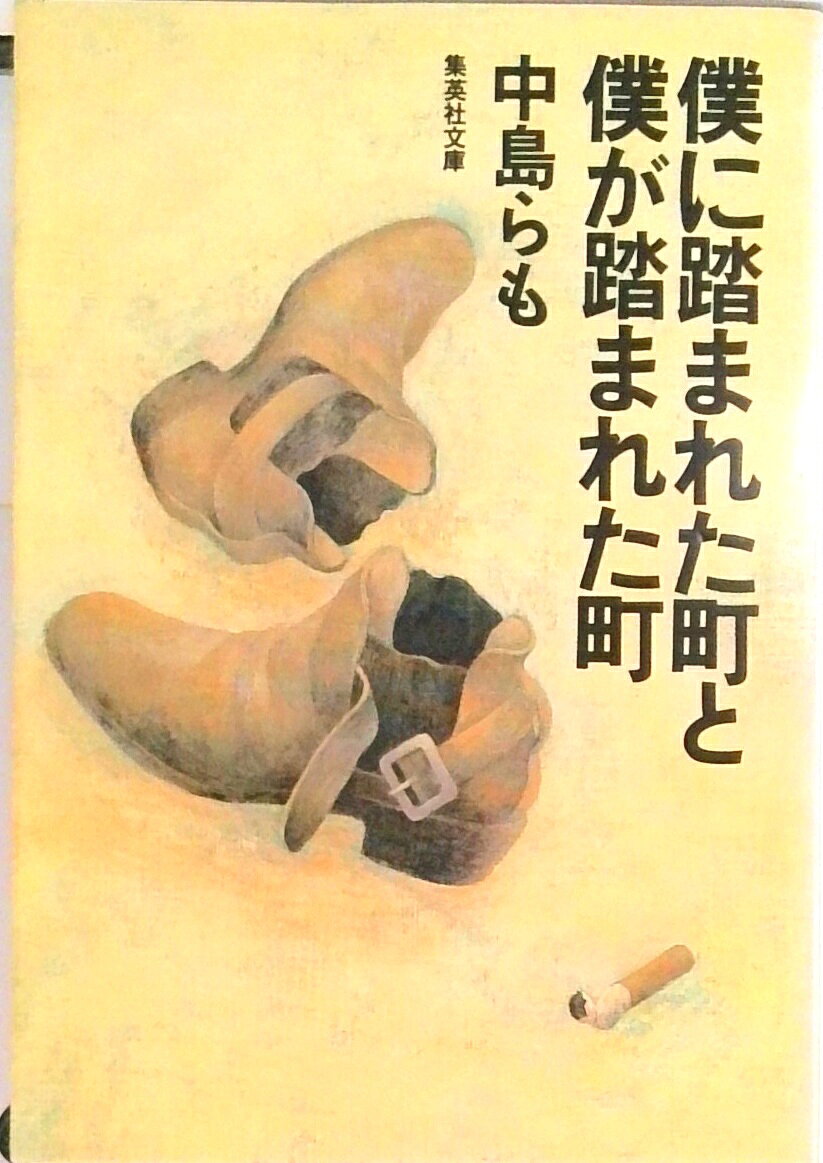 僕に踏まれた町と
僕が踏まれた町
中島らも
集英社文庫